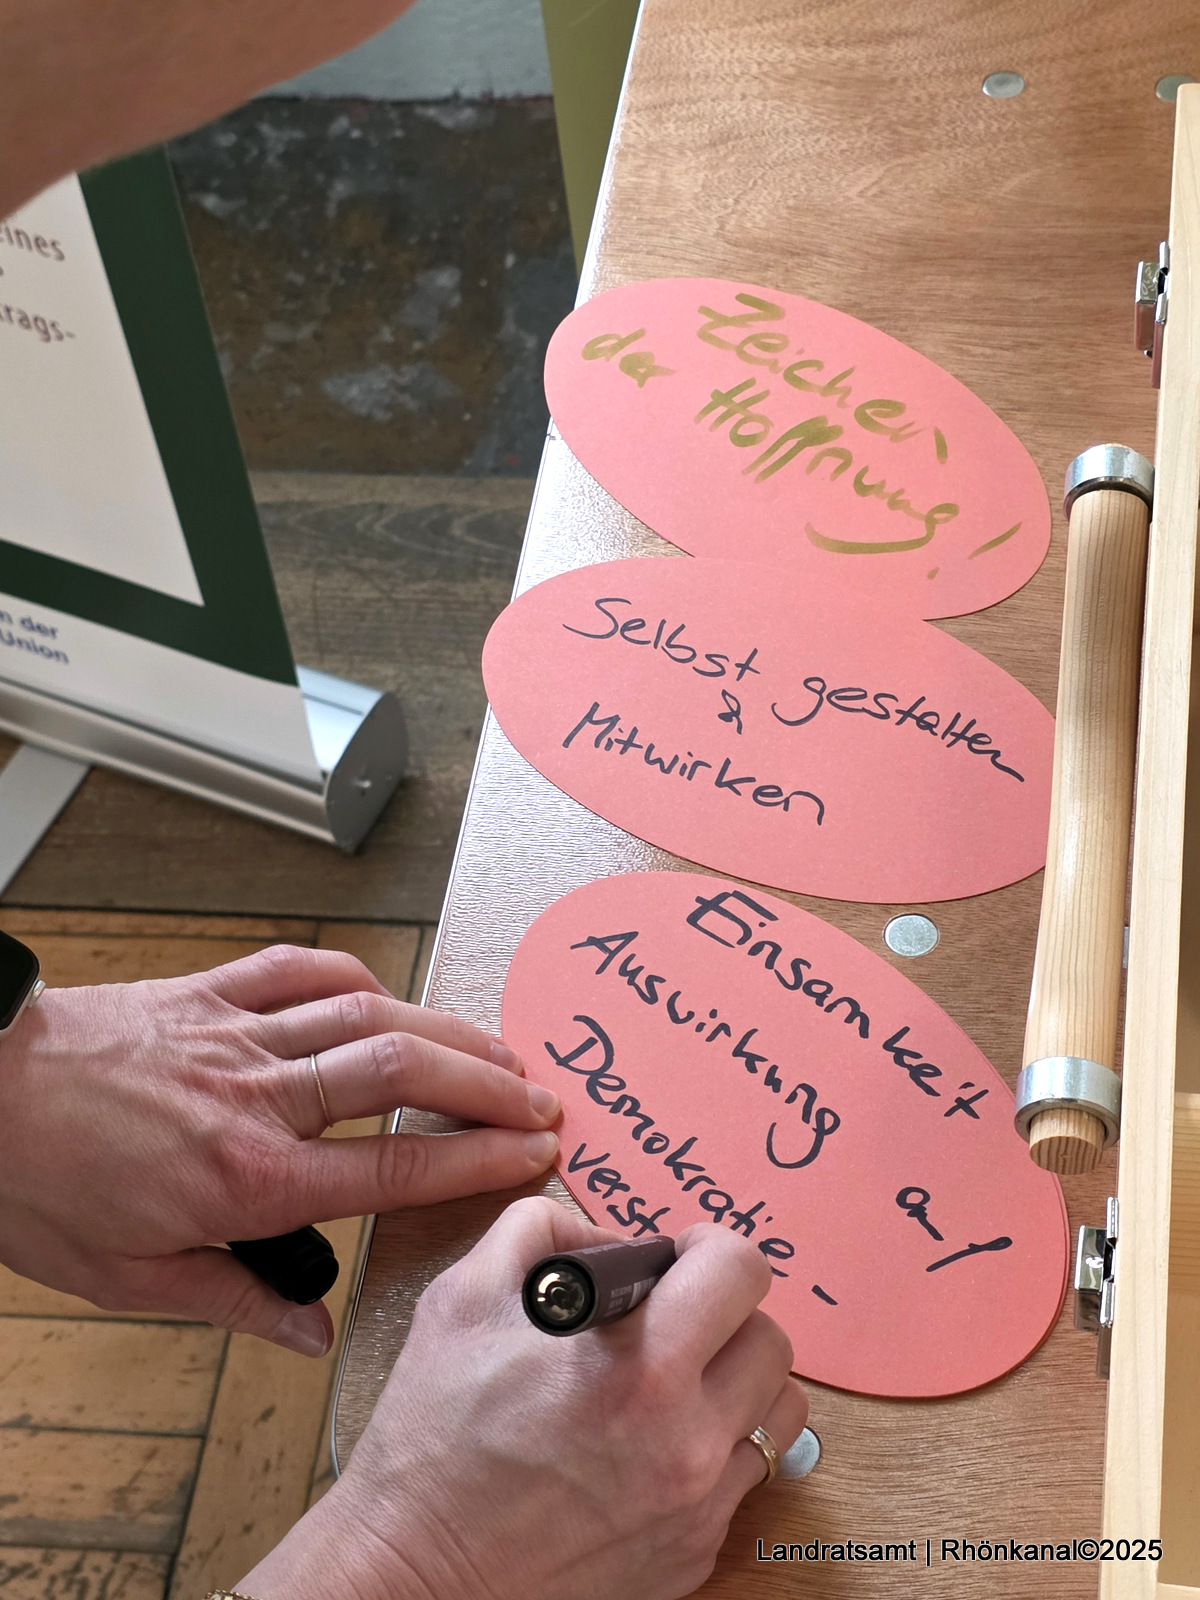 eines
trags-
n der
Union
Zeichen
der Hoffnung!
Selbst gestalten
&
Mitwirken
Einsamkeit
Auswirkung auf
Demokratie-
verst
Landratsamt | Rhönkanal©2025